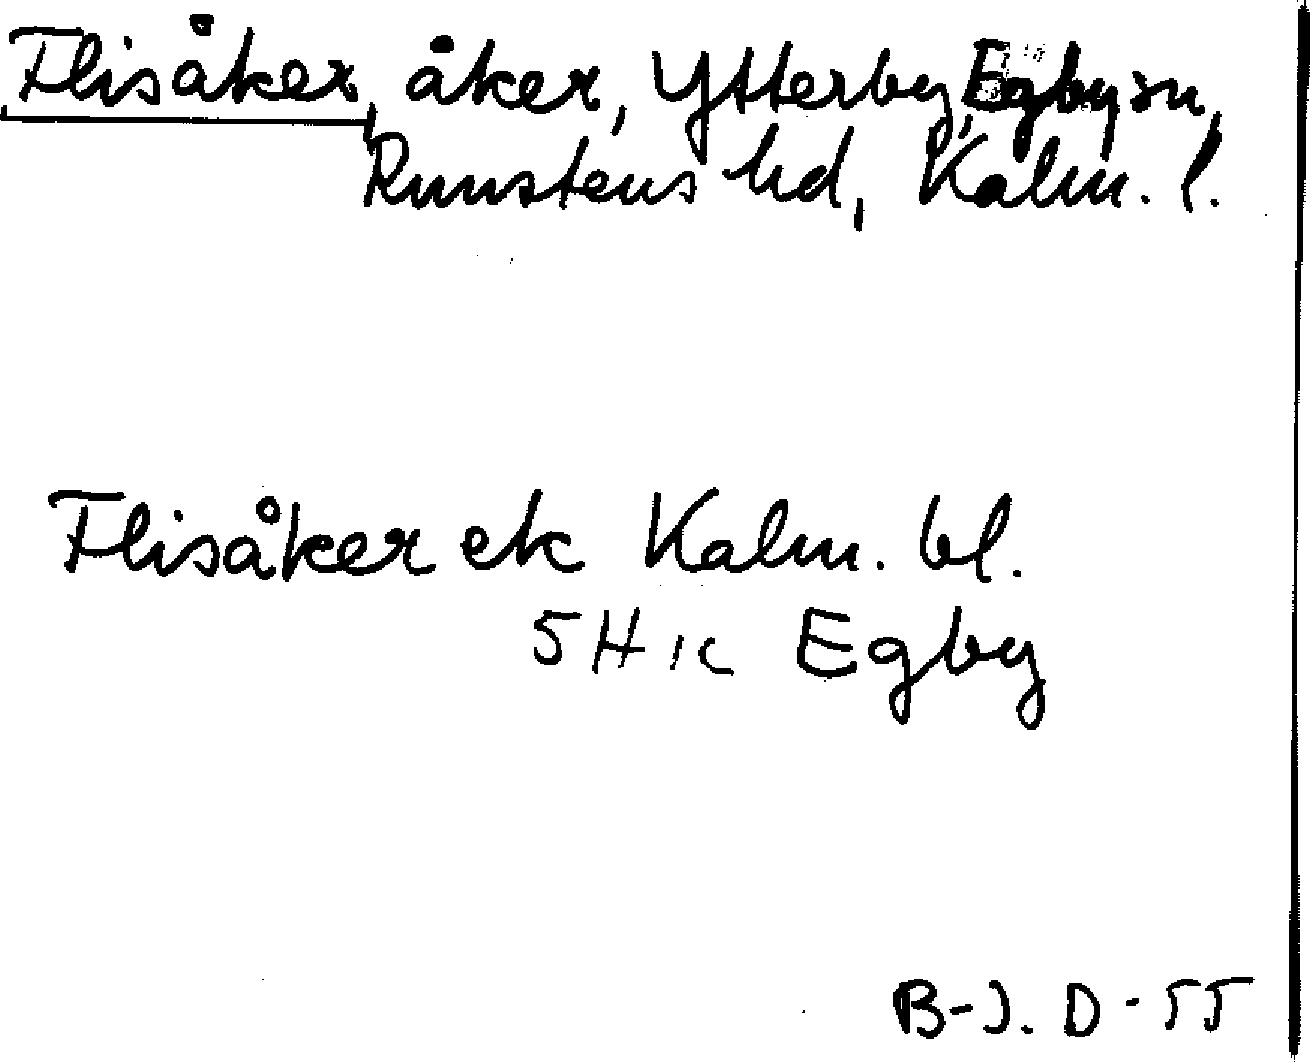 Flisåker, åker, Ytterby, Egby sn,
Runstens hd, Kalm. l.
Flisåker ek Kalm. bl.
5H 1c Egby
B-J. D-55